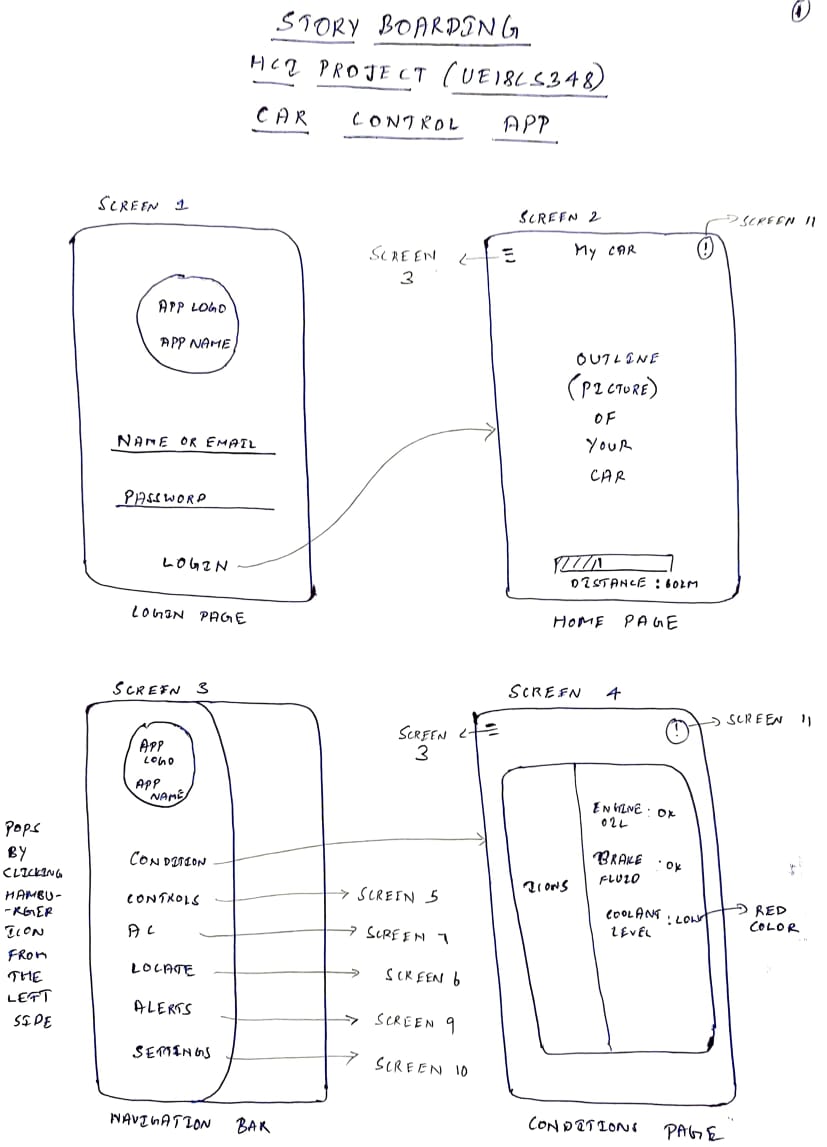 1
STORY BOARDING
HCI PROJECT (UE18CS348)
CAR CONTROL APP
SCREEN 1
APP LOGO
APP NAME
NAME OR EMAIL
PASSWORD
LOGIN
LOGIN PAGE
SCREEN 2
SCREEN 11
SCREEN
3
My CAR
!
OUTLINE
(PICTURE)
OF
YOUR
CAR
DISTANCE : 60KM
HOME PAGE
SCREEN 3
APP
LOGO
APP
NAME
POPS
BY
CLICKING
HAMBU-
-RGER
ICON
FROM
THE
LEFT
SIDE
CONDITION
CONTROLS
SCREEN 5
AC
SCREEN 7
LOCATE
SCREEN 6
ALERTS
SCREEN 9
SETTINGS
SCREEN 10
NAVIGATION BAR
SCREEN 4
SCREEN
3
!
SCREEN 11
ICONS
ENGINE : OK
OIL
BRAKE : OK
FLUID
COOLANT : LOW
LEVEL
RED
COLOR
CONDITIONS PAGE